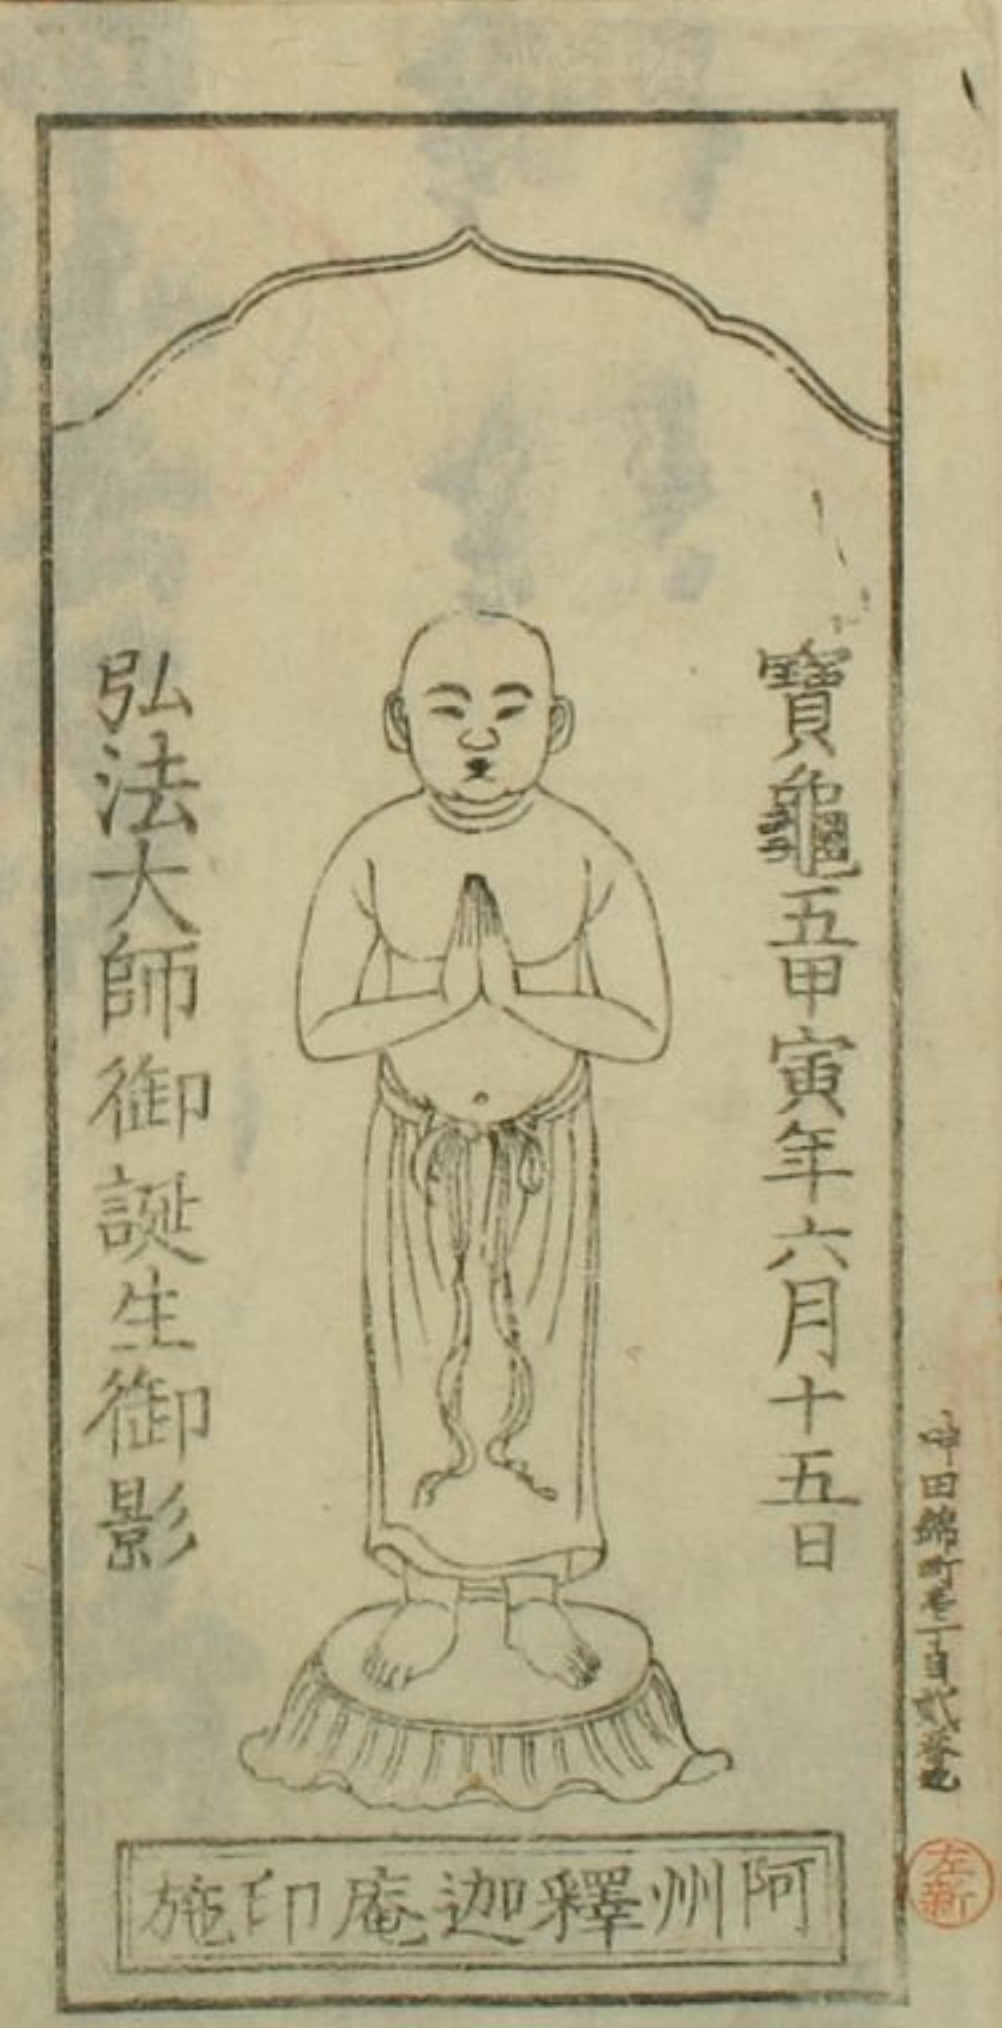 寶龜五甲寅年六月十五日
弘法大師御誕生御影
阿州釋迦庵印施
神田錦町壱丁目貳番地
左新